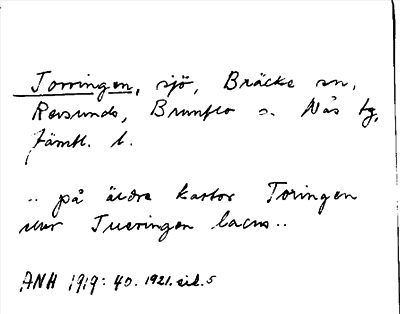 Torringen, sjö, Bräcke sn,
Revsunds, Brunflo o. Näs tg,
Jämtl. l.
.. på äldre kartor Toringen
eller Tueringen lacus ..
ANH 1919: 40. 1921. sid. 5